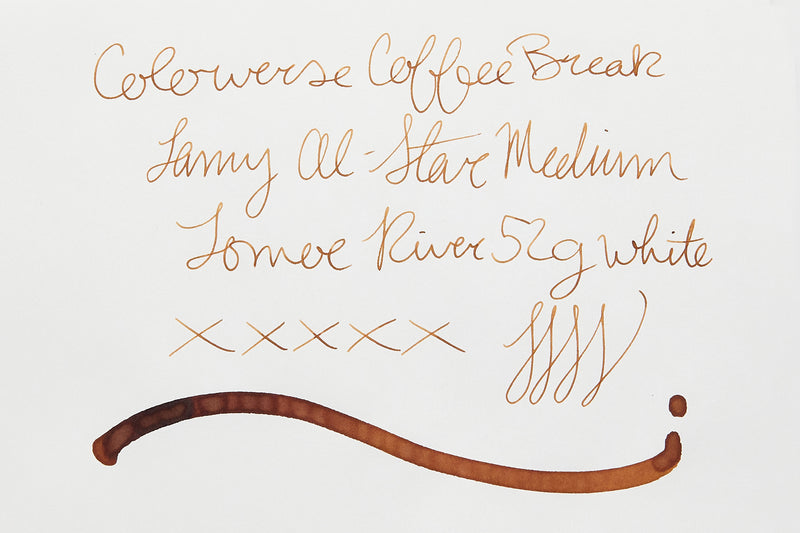 Colorverse Coffee Break
Lamy Al-Star Medium
Tomoe River 52g white
X X X X X